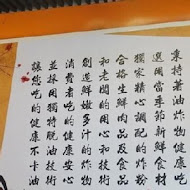 秉持著油炸物健康
選用當季節新鮮食材
獨家精心調配的炸粉
合格生鮮肉品及食品
和老闆的用心
創造鮮嫩多汁的炸物
消費者吃的健康安心
並採用獨特脫油技術
讓您吃的健康不卡油